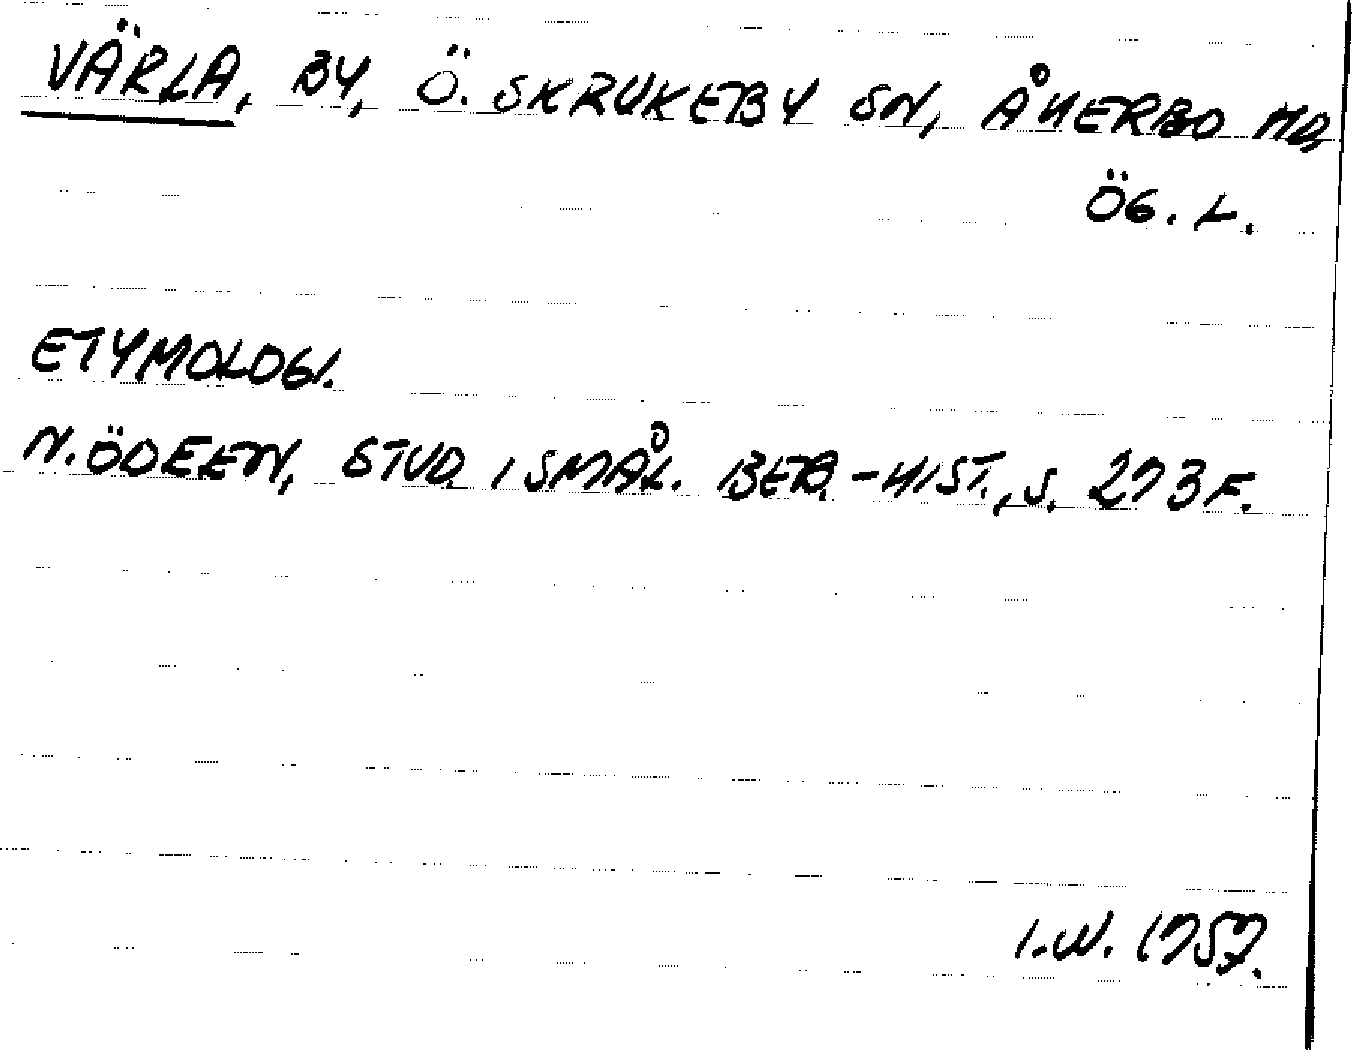 VÄRLA, BY, Ö. SKRUKEBY SN, ÅKERBO HD,
ÖG. L.
ETYMOLOGI.
N. ÖDEEN, STUD. I SMÅL. BEB.-HIST., S. 273 F.
I.W.